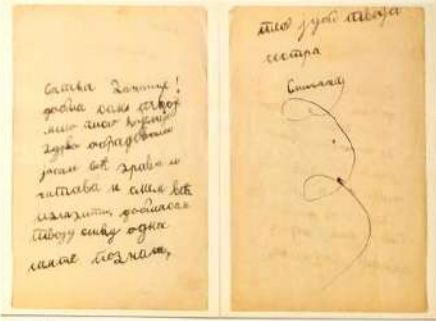 !
добила сам твој
мило писмо
здраво обрадовало
јасам већ здрава и
читава и смем већ
излазити, добиласам
твоју слику одма
сам те познала,
љуби твоја
сестра